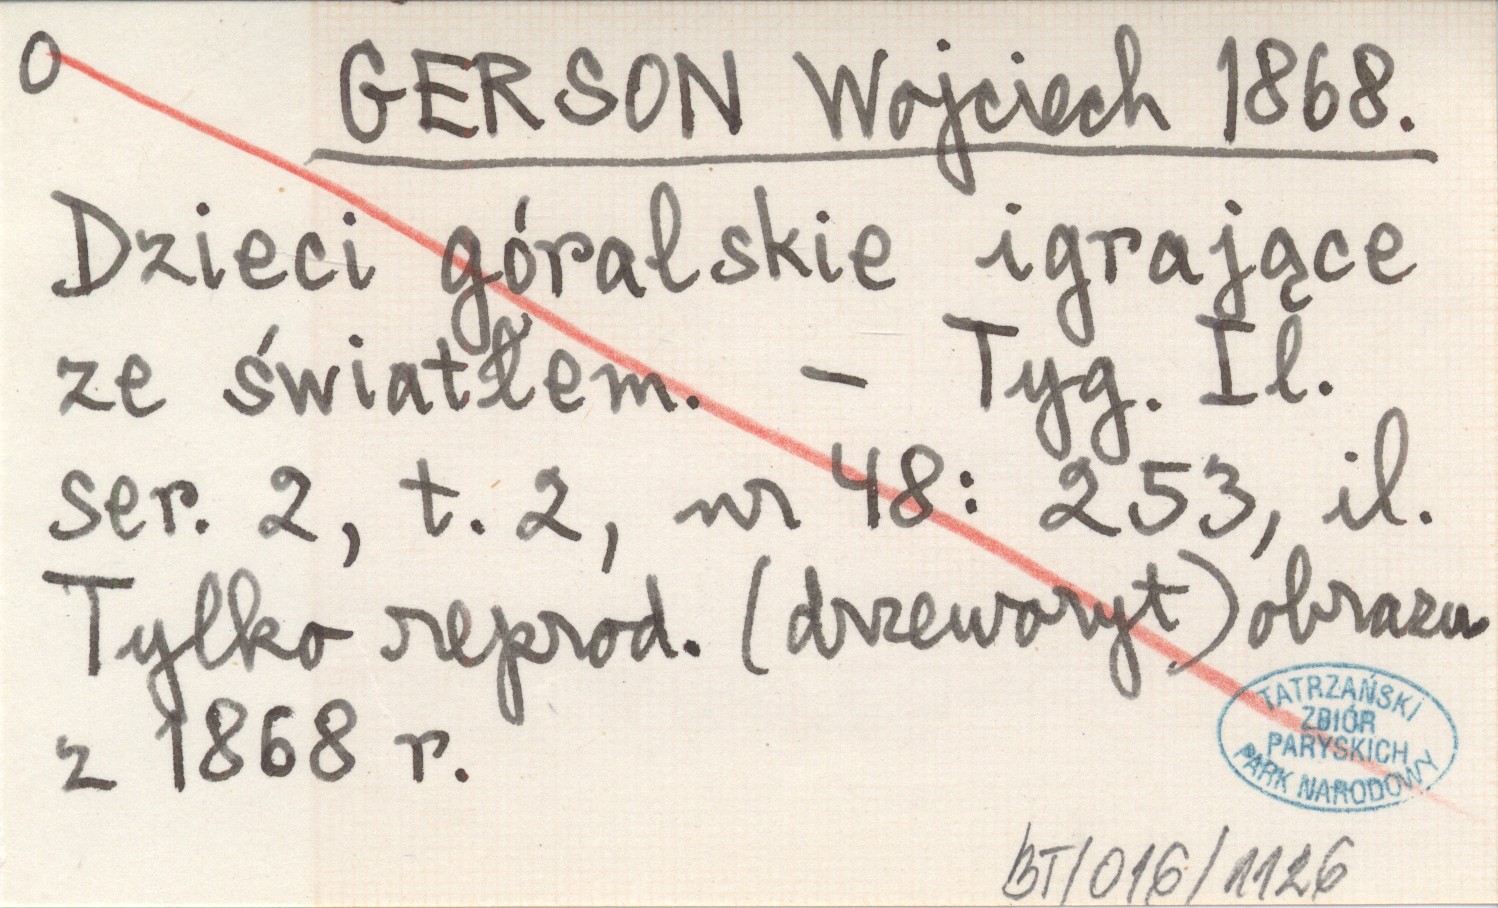 O
GERSON Wojciech 1868.
Dzieci góralskie igrające
ze światłem. – Tyg. Il.
ser. 2, t. 2, nr 48: 253, il.
Tylko reprod. (drzeworyt) obrazu
z 1868 r.
TATRZAŃSKI
ZBIÓR
PARYSKICH
PARK NARODOWY
BT/016/1126